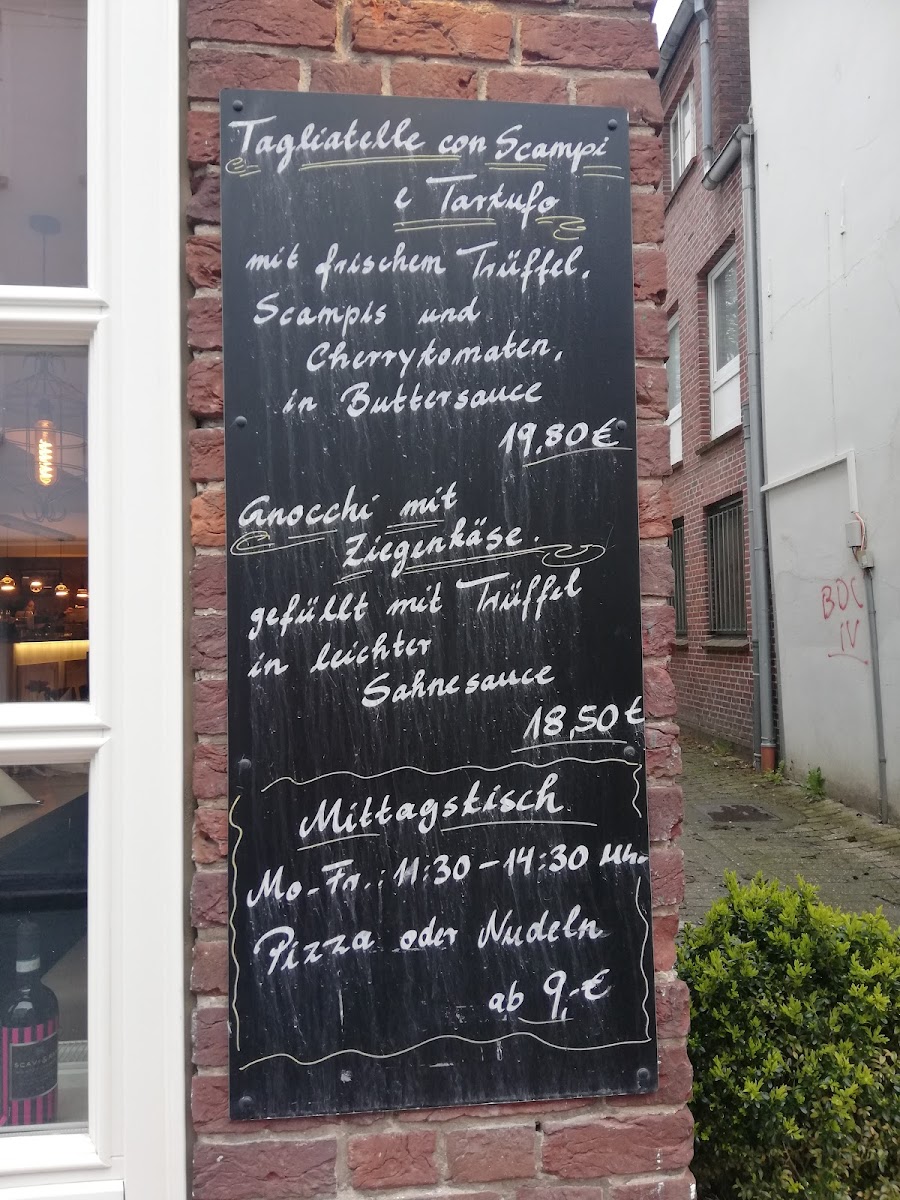 Tagliatelle con Scampi
e Tartufo
mit frischem Trüffel,
Scampis und
Cherrytomaten,
in Buttersauce
19,80 €
Gnocchi mit
Ziegenkäse.
gefüllt mit Trüffel
in leichter
Sahnesauce
18,50 €
Mittagstisch
Mo-Fr.: 11:30 - 14:30 Uhr
Pizza oder Nudeln
ab 9,- €
BOC
IV